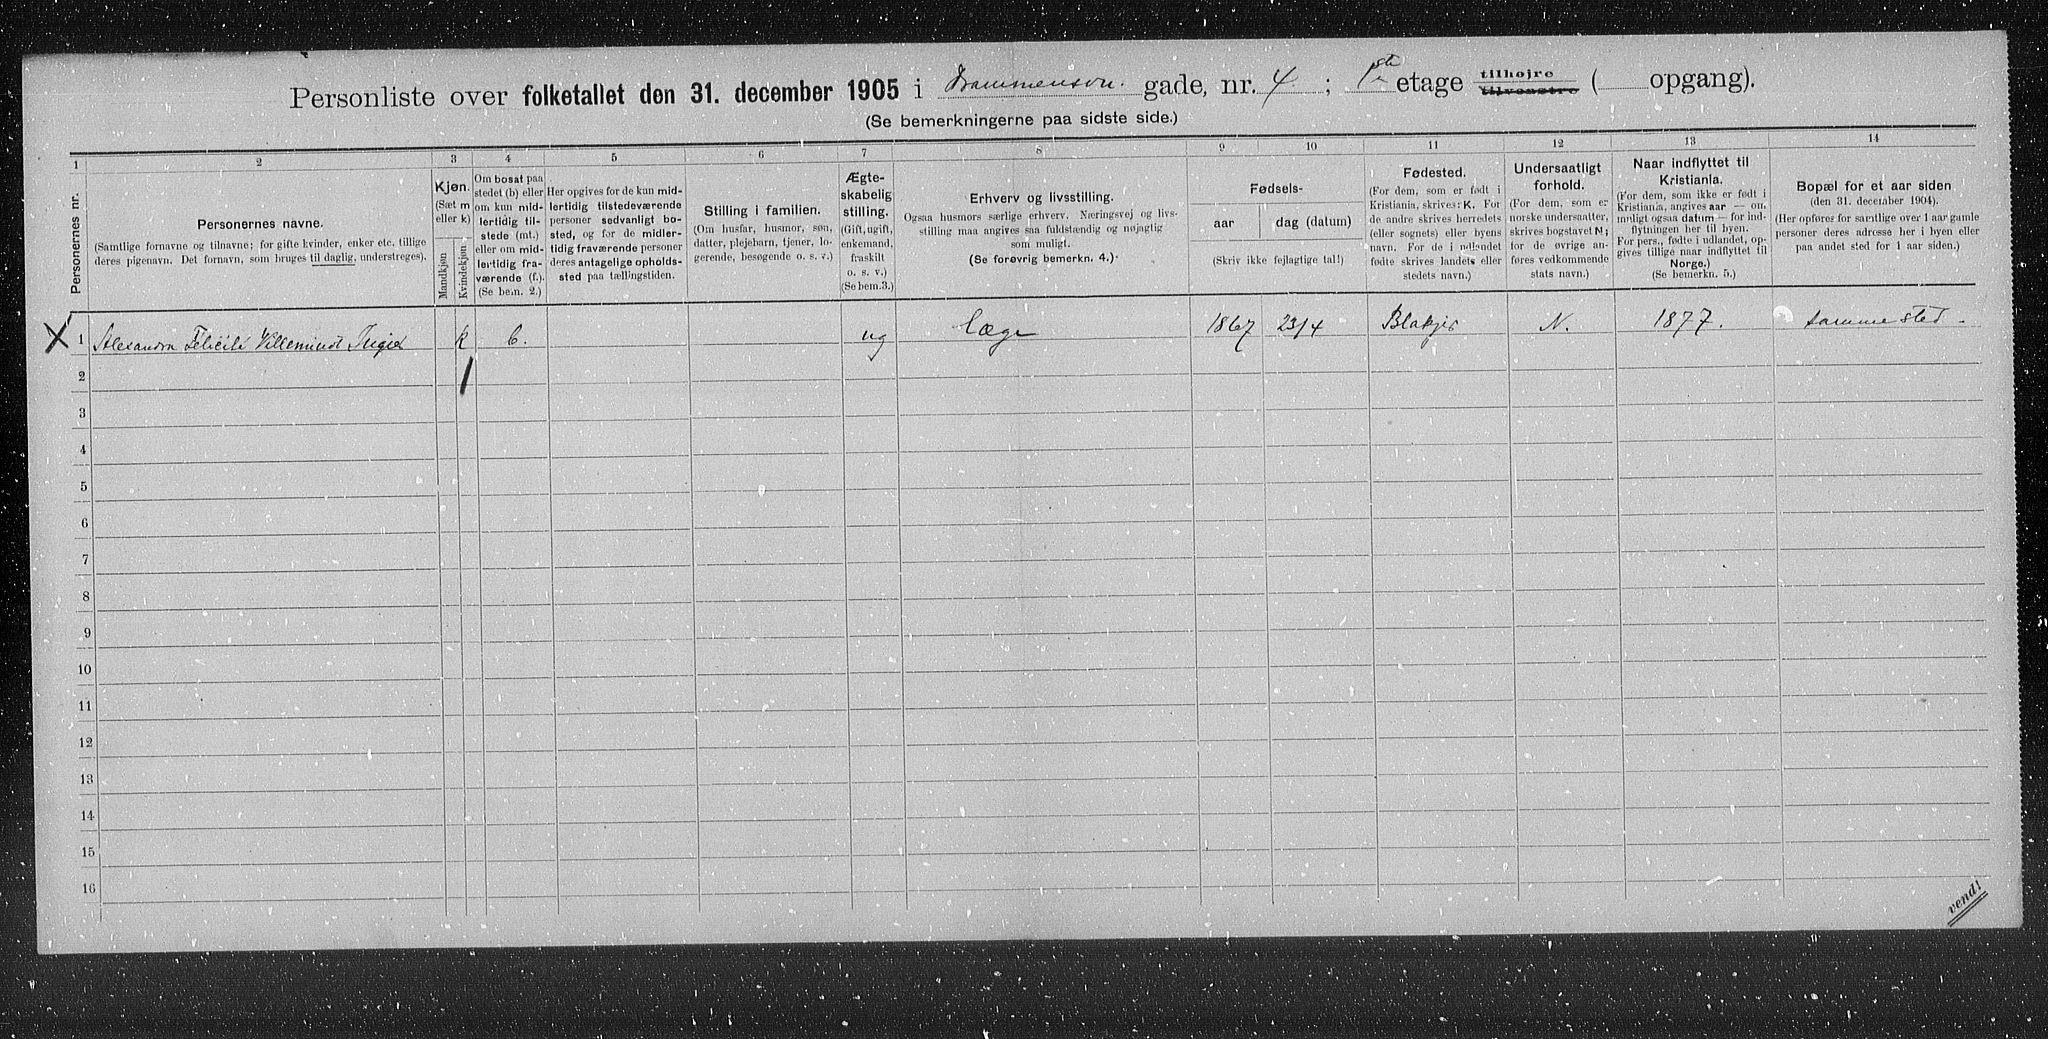 Personliste over folketallet den 31. december 1905 i Drammensvn. gade, nr. 4 ; 1ste etage tilhøjre tilvenstre ( opgang).
(Se bemerkningerne paa sidste side.)
1 2 3 4 5 6 7 8 9 10 11 12 13 14
Personernes nr.
Personernes navne.
(Samtlige fornavne og tilnavne; for gifte kvinder, enker etc. tillige
deres pigenavn. Det fornavn, som bruges til daglig, understreges).
Kjøn.
(Sæt m
eller k)
Mandkjøn
Kvindekjøn
Om bosat paa
stedet (b) eller
om kun mid-
lertidig til-
stede (mt.)
eller om mid-
lertidig fra-
værende (f.).
(Se bem. 2.)
Her opgives for de kun mid-
lertidig tilstedeværende
personer sedvanligt bo-
sted, og for de midler-
tidig fraværende personer
deres antagelige opholds-
sted paa tællingstiden.
Stilling i familien.
(Om husfar, husmor, søn,
datter, plejebarn, tjener, lo-
gerende, besøgende o. s. v.)
Ægte-
skabelig
stilling.
(Gift, ugift,
enkemand,
fraskilt
o. s. v.)
(Se bem.3.)
Erhverv og livsstilling.
Ogsaa husmors særlige erhverv. Næringsvej og livs-
stilling maa angives saa fuldstændig og nøjagtig
som muligt.
(Se forøvrig bemerkn. 4.)
Fødsels-
aar dag (datum)
(Skriv ikke fejlagtige tal!)
Fødested.
(For dem, som er født i
Kristiania, skrives: K. For
de andre skrives herredets
(eller sognets) eller byens
navn. For de i udlandet
fødte skrives landets eller
stedets navn.)
Undersaatligt
forhold.
(For dem, som er
norske undersaatter,
skrives bogstavet N;
for de øvrige an-
føres vedkommende
stats navn.)
Naar indflyttet til
Kristiania.
(For dem, som ikke er født i
Kristiania, angives aar — om
muligt ogsaa datum — for ind-
flytningen her til byen.
For pers., fødte i udlandet, op-
gives tillige naar indflyttet til
Norge.)
(Se bemerkn. 5.)
Bopæl for et aar siden
(den 31. december 1904).
(Her opføres for samtlige over 1 aar gamle
personer deres adresse her i byen eller
paa andet sted for 1 aar siden.)
X 1 Alexandra k b. ug læge 1867 23/4 Blakjer N. 1877. samme sted.
2
3
4
5
6
7
8
9
10
11
12
13
14
15
16
vend!